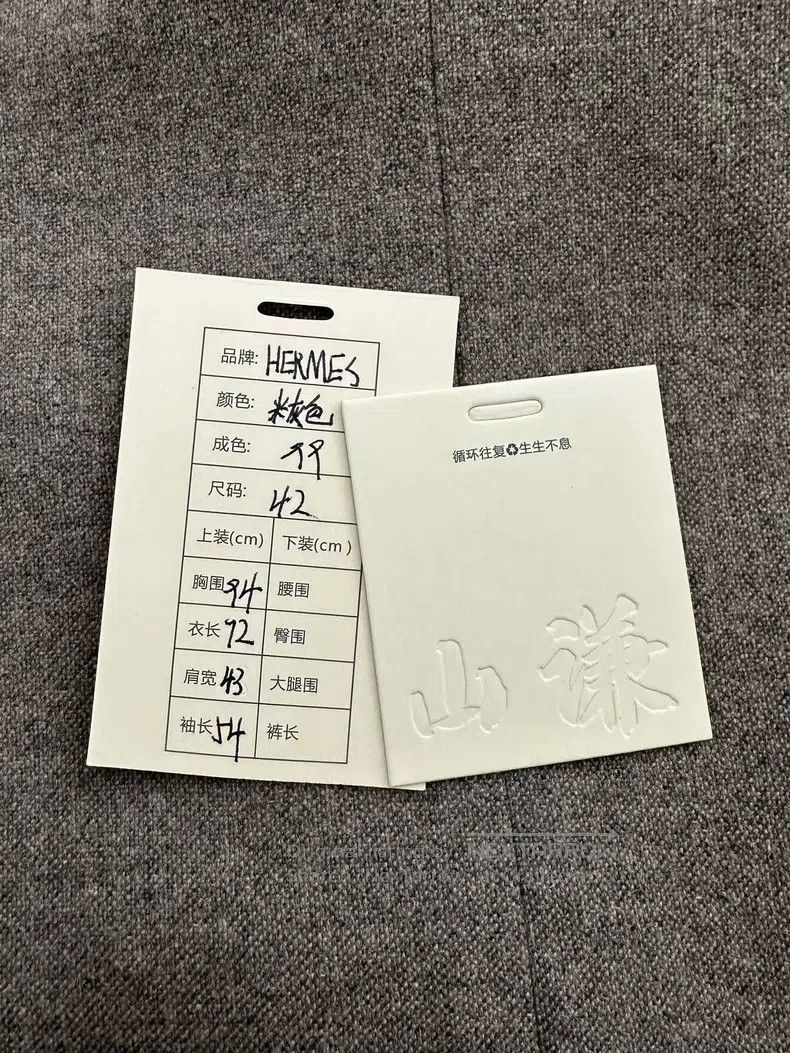 品牌: HERMES
颜色: 炭灰色
成色: 99
尺码: 42
上装(cm) 下装(cm)
胸围 94 腰围
衣长 72 臀围
肩宽 43 大腿围
袖长 54 裤长
循环往复♻生生不息
山谦